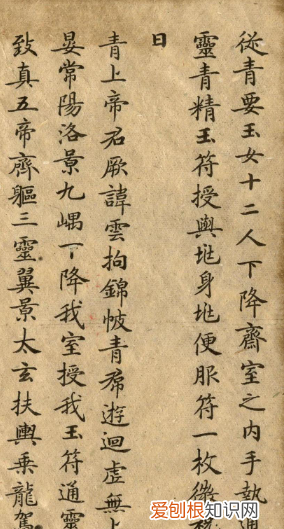 從青要玉女十二人下降齋室之內手執通
靈青精玉符授與兆身兆便服符一枚微祝
曰
青上帝君厥諱雲拘錦帔青帬遊迴虛無上
晏常陽洛景九嵎下降我室授我玉符通靈
致真五帝齊軀三靈翼景太玄扶輿乘龍駕
爱刨根知识网
www.akpgw.com